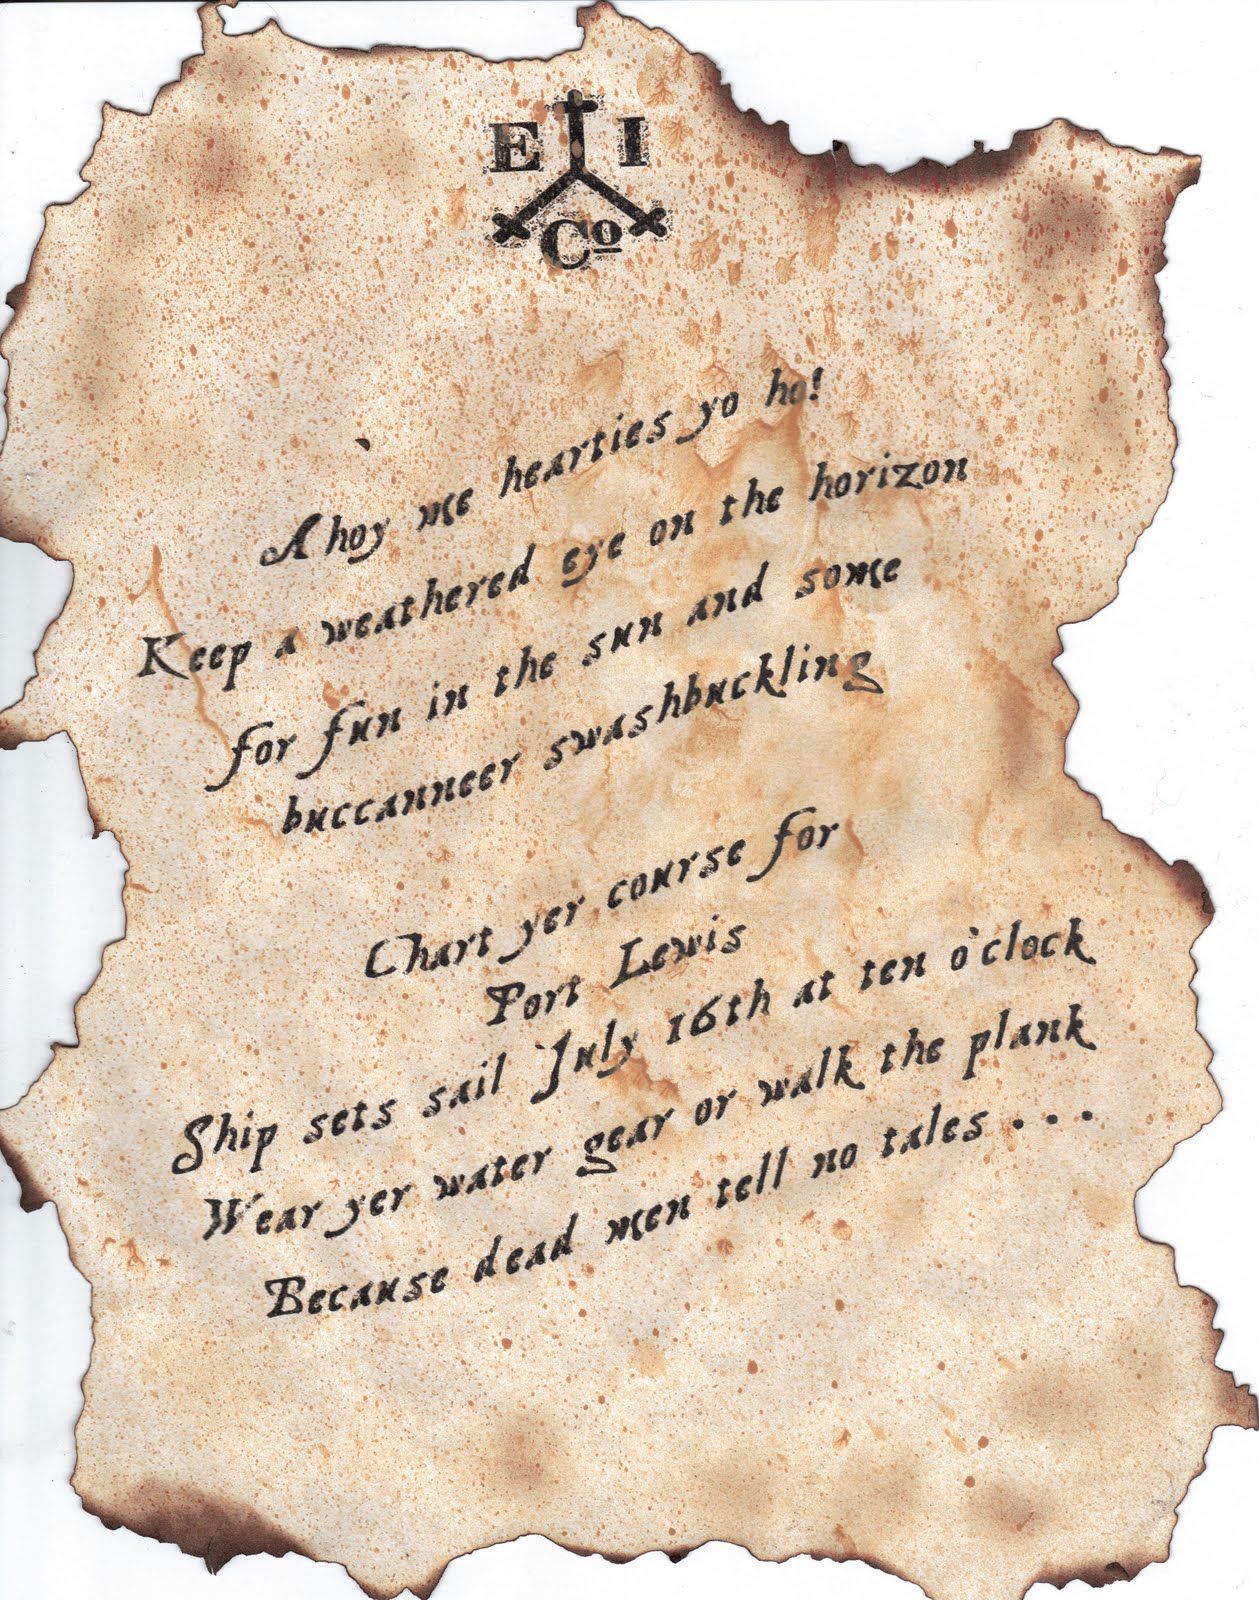 E I
Co
Ahoy me hearties yo ho!
Keep a weathered eye on the horizon
for fun in the sun and some
buccanneer swashbuckling
Chart yer course for
Port Lewis
Ship sets sail July 16th at ten o'clock
Wear yer water gear or walk the plank
Because dead men tell no tales . . .